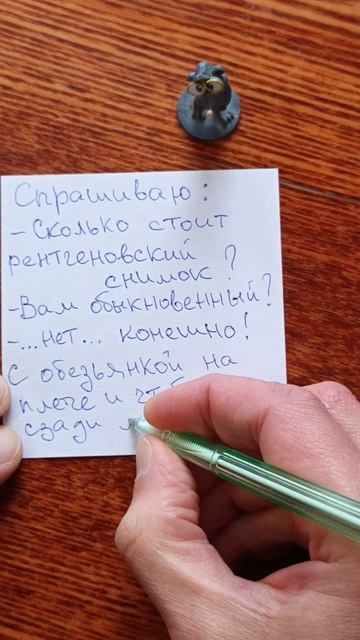 Спрашиваю:
- Сколько стоит
рентгеновский
снимок?
- Вам обыкновенный?
- ...нет... конешно!
С обезьянкой на
плече и
сзади